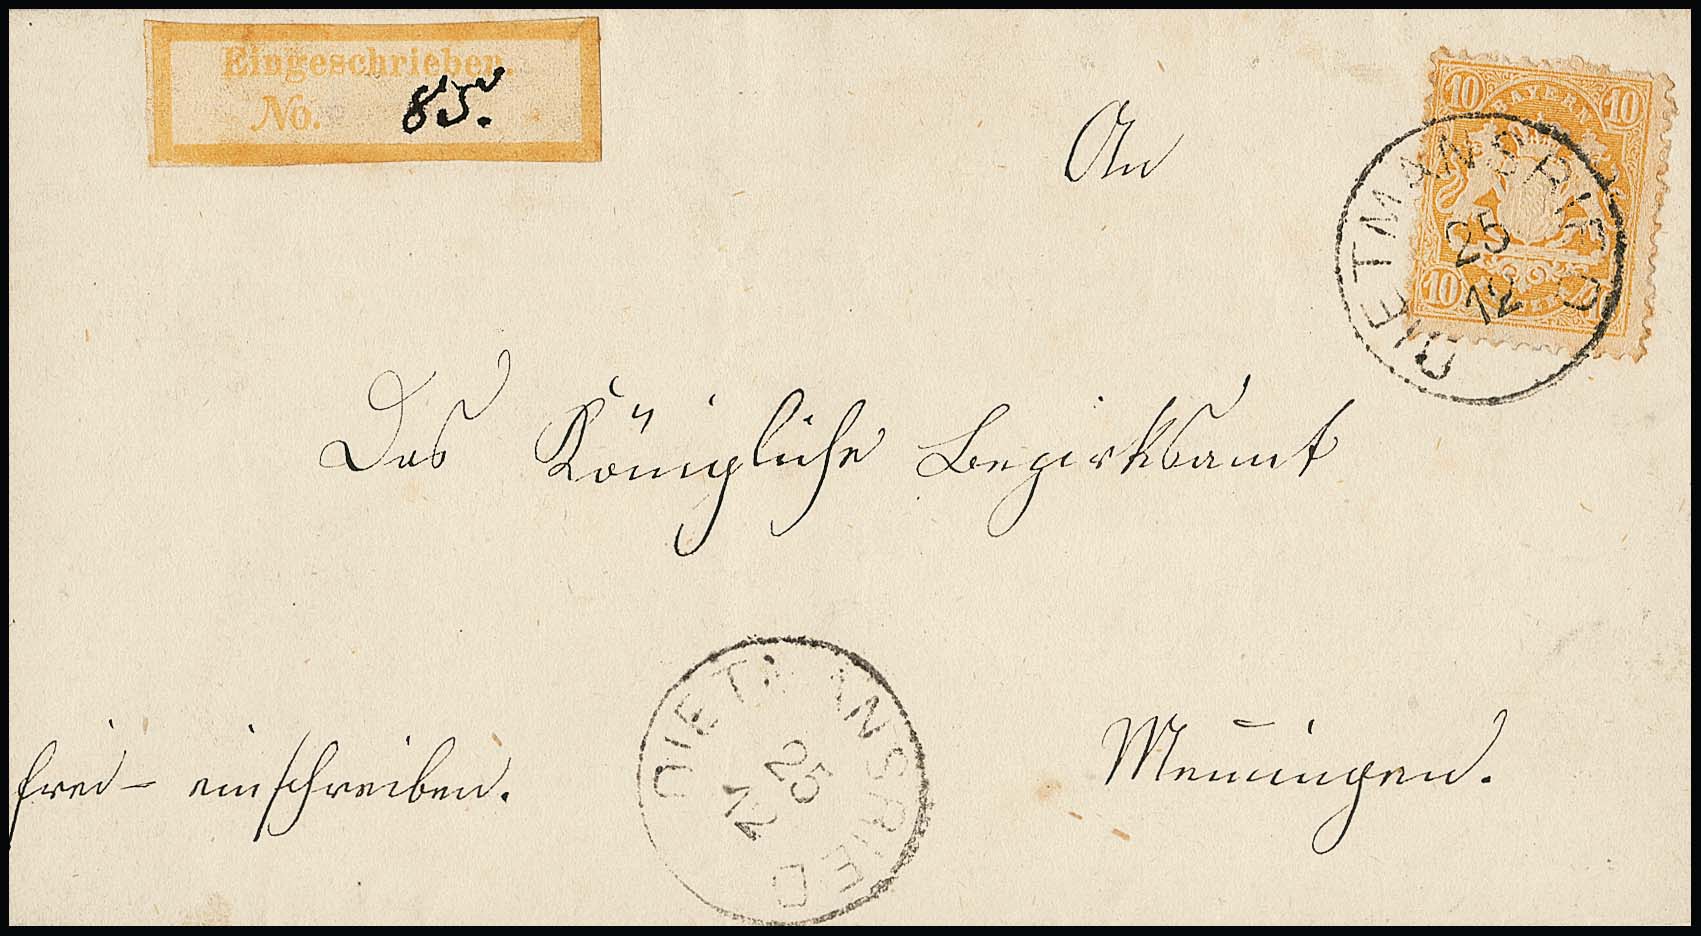 Eingeschrieben.
No. 85.
10 BAYERN 10
10
DIETMANSRIED
25
12
An
Das Königliche Bezirksamt
Memmingen.
frei - einschreiben.
DIETMANSRIED
25
12